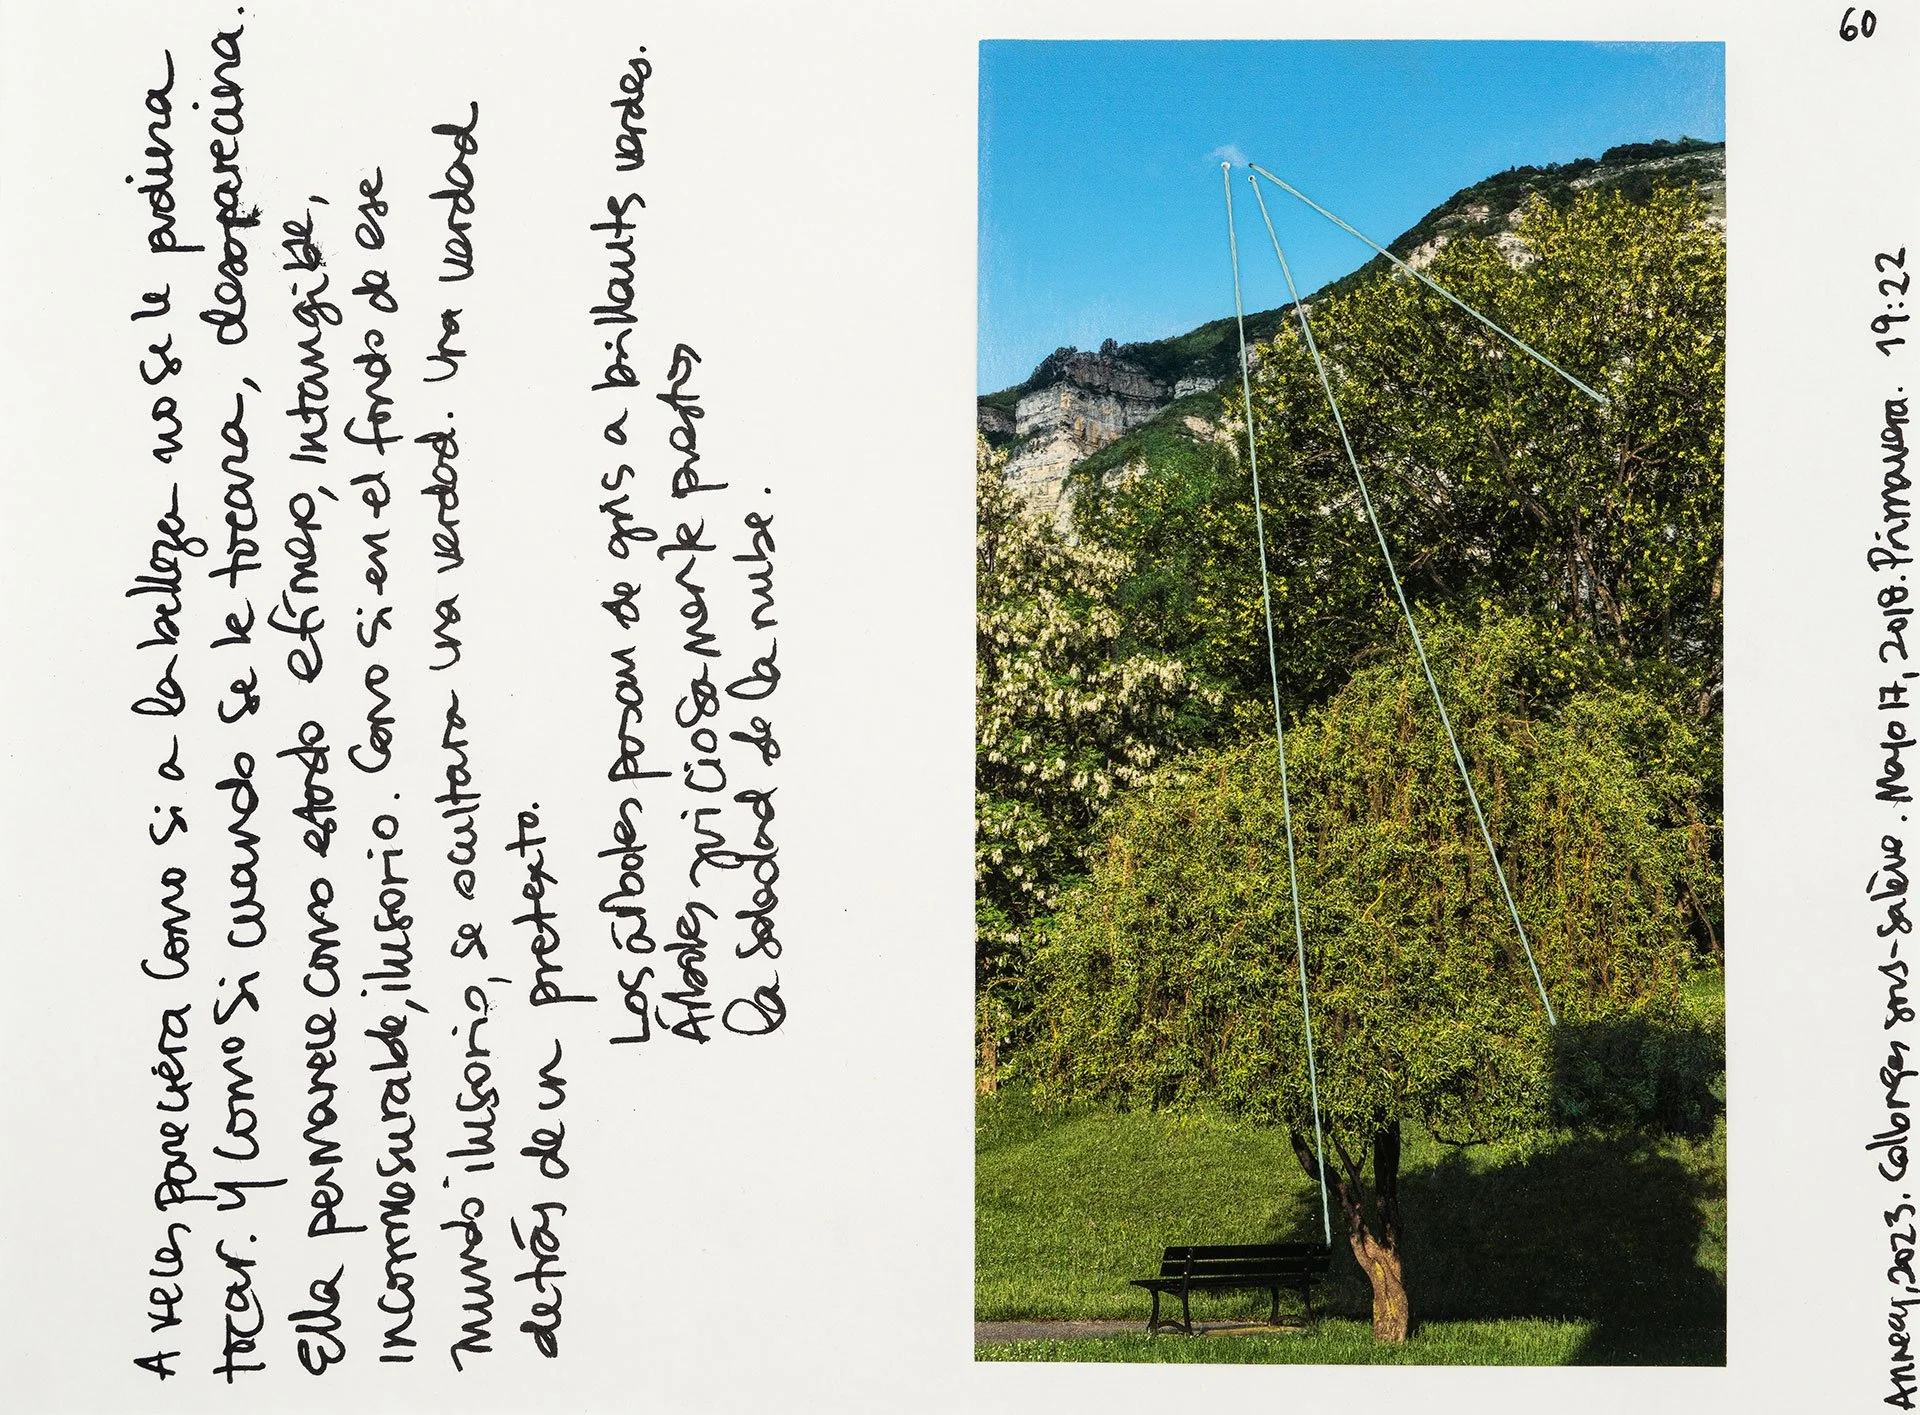 60
A veces pareciera como si a la belleza no se le pudiera
tocar. Y como si cuando se le tocara, desapareciera.
Ella permanece como estado efímero, intangible,
inconmesurable, ilusorio. Como si en el fondo de ese
mundo ilusorio, se ocultara una verdad. Una verdad
detrás de un pretexto.
Los árboles pasan de gris a brillants verdes.
Árboles juiciosamente prestos
la soledad de la nube.
Annecy, 2023. Collonges sous-Salève. Mayo 17, 2018. Primavera. 19:22